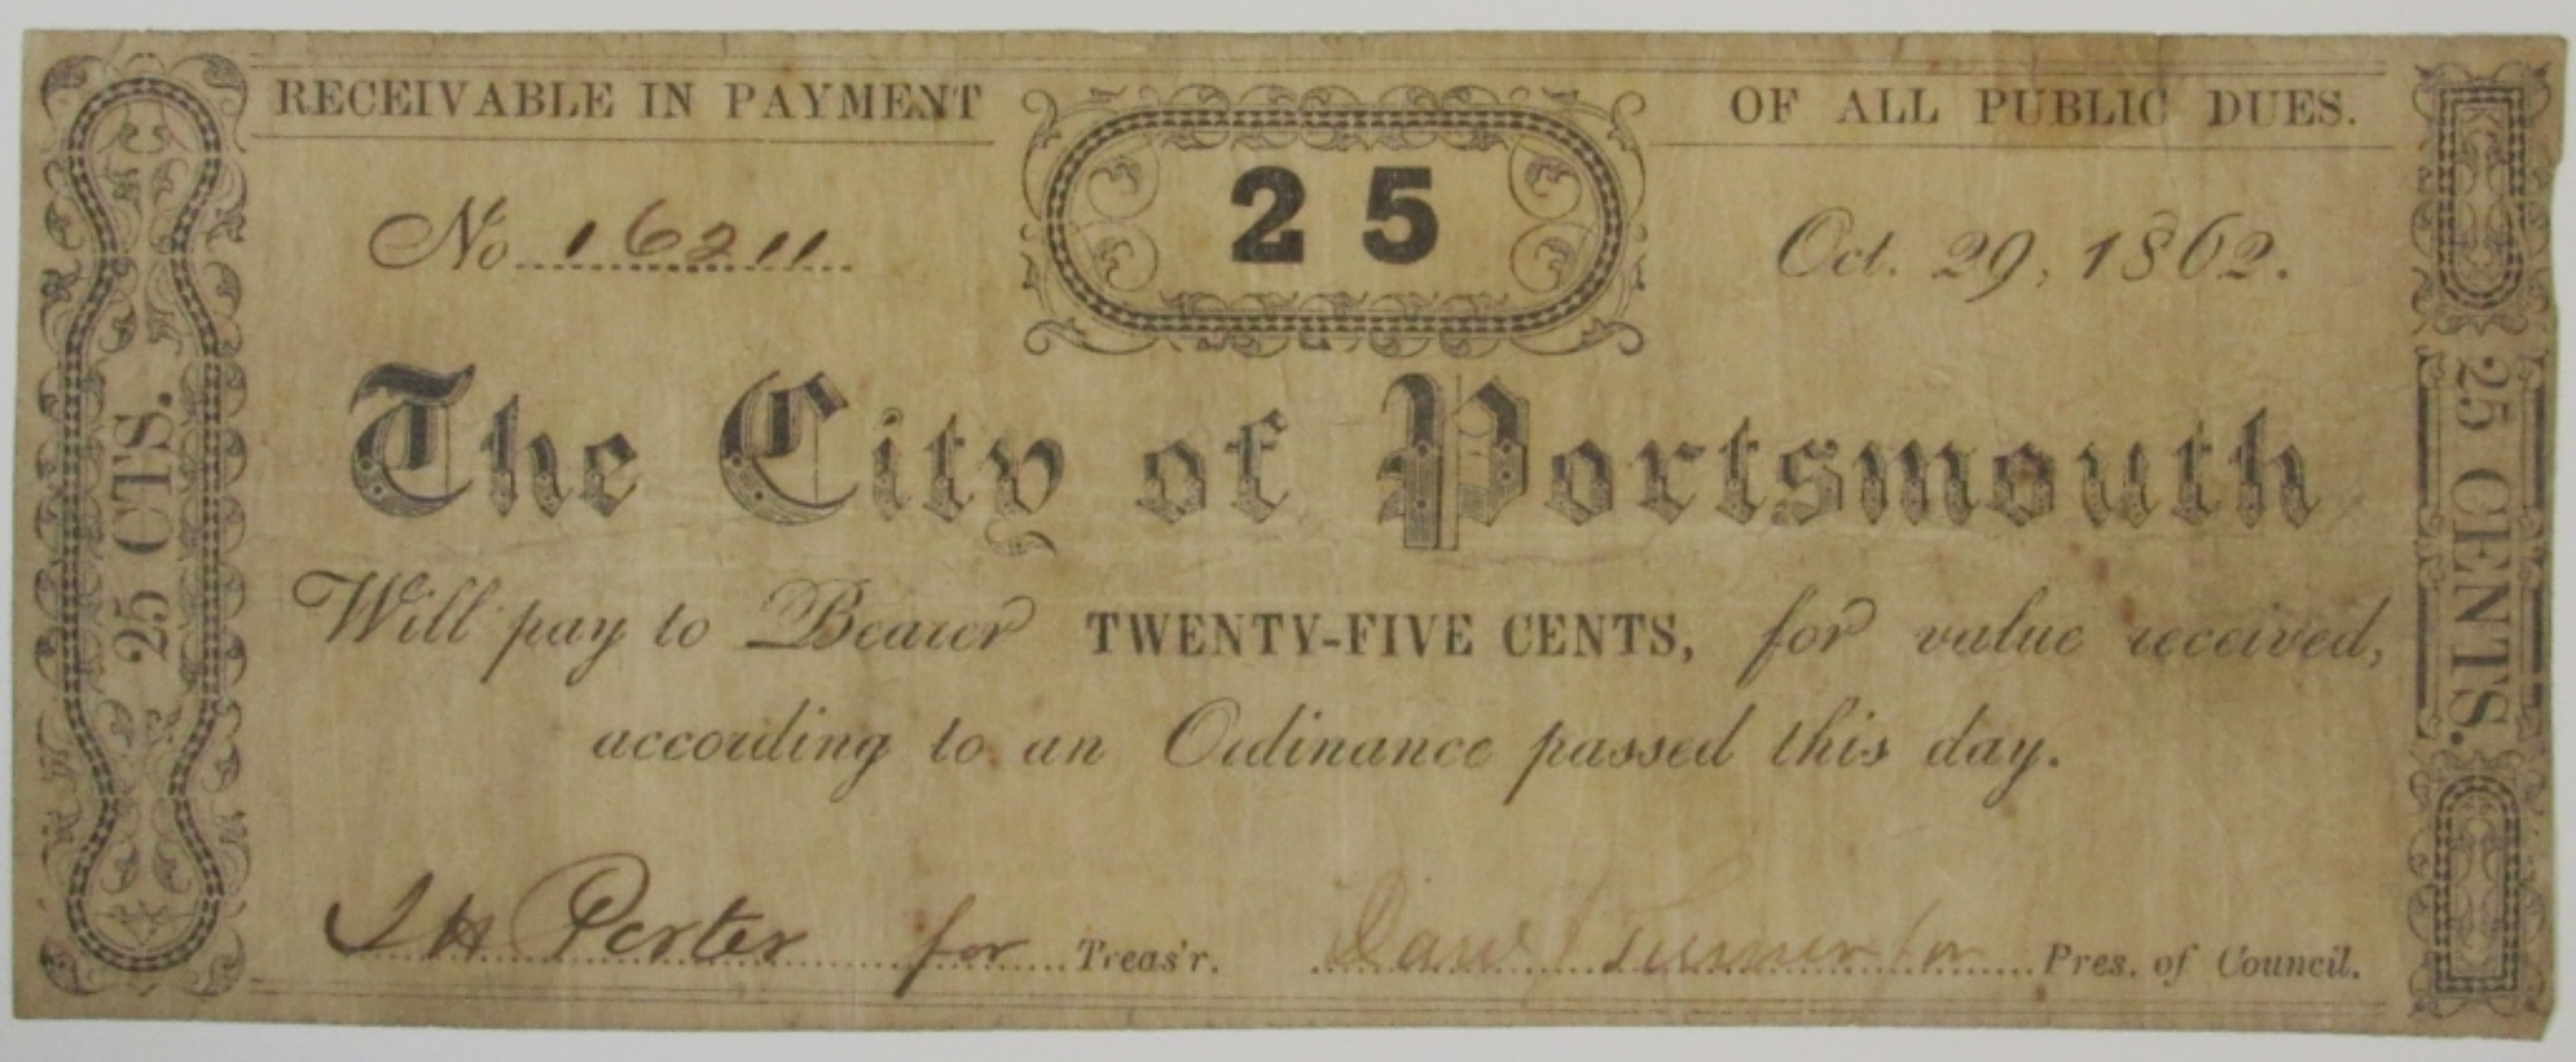 RECEIVABLE IN PAYMENT 25 OF ALL PUBLIC DUES.
No 16211 Oct. 29, 1862.
The City of Portsmouth
Will pay to Bearer TWENTY-FIVE CENTS, for value received,
according to an Ordinance passed this day.
H Porter for Treas'r. for Pres. of Council.
25 CTS.
25 CENTS.